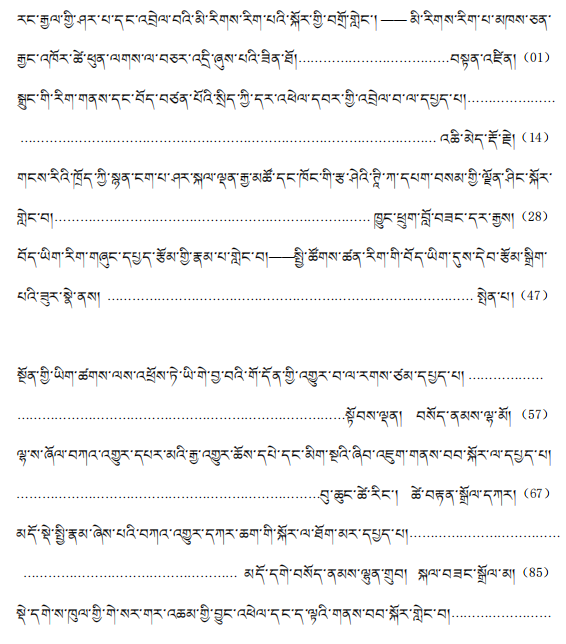 རང་རྒྱལ་གྱི་ཤར་པ་དང་འབྲེལ་བའི་མི་རིགས་རིག་པའི་སྐོར་གྱི་བགྲོ་གླེང་། —— མི་རིགས་རིག་པ་མཁས་ཅན་
རྒྱང་འཁོར་ཚེ་ཕུན་ལགས་ལ་བཅར་འདྲི་ཞུས་པའི་ཟིན་ཐོ།……………………………བསྟན་འཛིན། (01)
སྒྲུང་གི་རིག་གནས་དང་བོད་བཙན་པོའི་སྲིད་ཀྱི་དར་འཕེལ་དབར་གྱི་འབྲེལ་བ་ལ་དཔྱད་པ།…………………
…………………………………………………………………………………… འཆི་མེད་རྡོ་རྗེ། (14)
གངས་རིའི་ཁྲོད་ཀྱི་སྙན་ངག་པ་ཤར་སྐལ་ལྡན་རྒྱ་མཚོ་དང་ཁོང་གི་རྩ་ཤེའི་ཊཱི་ཀ་དཔག་བསམ་གྱི་ལྗོན་ཤིང་སྐོར་
གླེང་བ།…………………………………………………………………… ཁྱུང་ཕྲུག་བློ་བཟང་དར་རྒྱས། (28)
བོད་ཡིག་རིག་གཞུང་དཔྱད་རྩོམ་གྱི་རྣམ་པ་གླེང་བ།——སྤྱི་ཚོགས་ཚན་རིག་གི་བོད་ཡིག་དུས་དེབ་རྩོམ་སྒྲིག་
པའི་ཟུར་སྣེ་ནས། ………………………………………………………………………… སྤེན་པ། (47)
སྔོན་གྱི་ཡིག་ཚགས་ལས་འཕྲོས་ཏེ་ཡི་གེ་བྱ་བའི་གོ་དོན་གྱི་འགྱུར་བ་ལ་རགས་ཙམ་དཔྱད་པ། ………………
………………………………………………………………སྟོབས་ལྡན། བསོད་ནམས་ལྷ་མོ། (57)
ལྷ་ས་ཞོལ་བཀའ་འགྱུར་དཔར་མའི་རྒྱ་འགྱུར་ཆོས་དཔེ་དང་མིག་སྔའི་ཞིབ་འཇུག་གནས་བབ་སྐོར་ལ་དཔྱད་པ།
…………………………………………………………བུ་ཆུང་ཚེ་རིང་། ཚེ་བརྟན་སྒྲོལ་དཀར། (67)
མདོ་སྡེ་སྤྱི་རྣམ་ཞེས་པའི་བཀའ་འགྱུར་དཀར་ཆག་གི་སྐོར་ལ་ཐོག་མར་དཔྱད་པ།……………………………
……………………………………… མདོ་དགེ་བསོད་ནམས་ལྷུན་གྲུབ། སྐལ་བཟང་སྒྲོལ་མ། (85)
སྡེ་དགེ་ས་ཁུལ་གྱི་གེ་སར་གར་འཆམ་གྱི་བྱུང་འཕེལ་དང་ད་ལྟའི་གནས་བབ་སྐོར་གླེང་བ།…………………